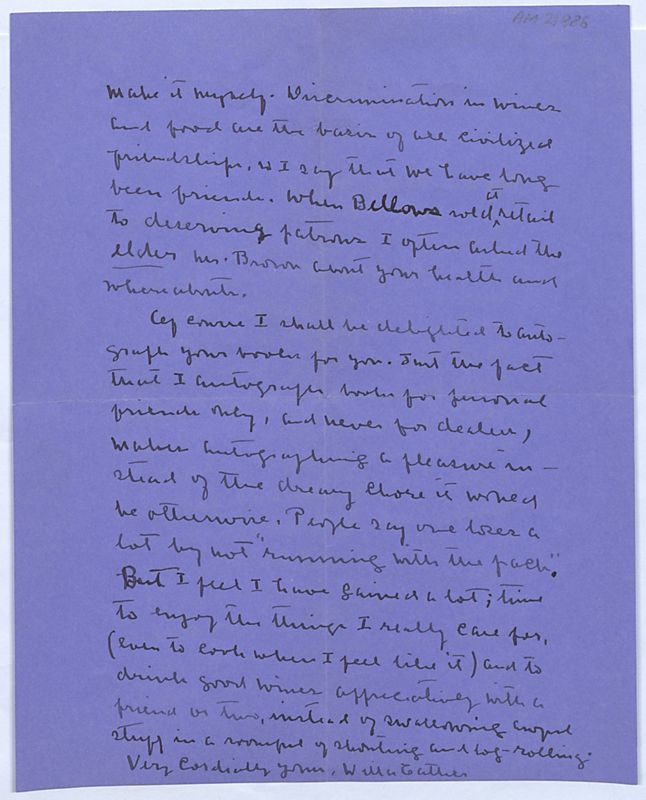 AM 21986
make it myself. Discrimination in wines
and food are the basis of all civilized
friendships, so I say that we have long
been friends. When Bellows sold at retail
to deserving patrons I often asked the
elder Mr. Brown about your health and
whereabouts.
Of course I shall be delighted to auto-
graph your books for you. Just the fact
that I autograph books for personal
friends only, and never for dealers,
makes autographing a pleasure in-
stead of the dreary chore it would
be otherwise. People say one loses a
lot by not "running with the pack".
But I feel I have gained a lot; time
to enjoy the things I really care for,
(even to cook when I feel like it) and to
drink good wines appreciatively with a
friend or two, instead of swallowing awful
stuff in a roomful of shouting and log-rolling.
Very Cordially yours, Willa Cather